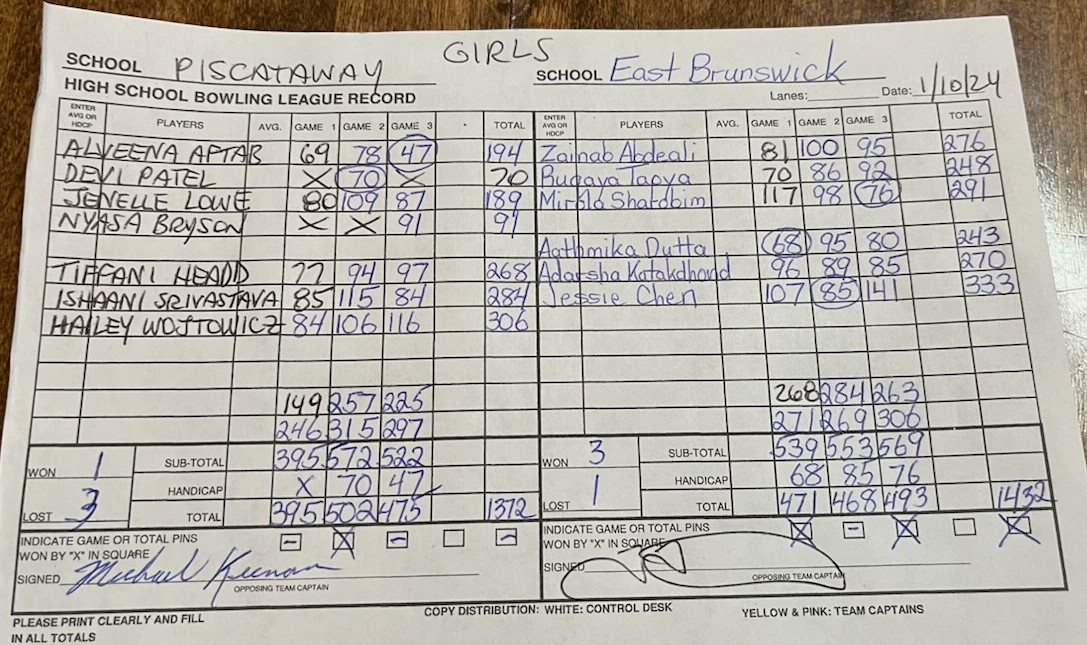 GIRLS
SCHOOL PISCATAWAY SCHOOL East Brunswick
HIGH SCHOOL BOWLING LEAGUE RECORD Lanes: Date: 1/10/24
ENTER AVG OR HDCP PLAYERS AVG. GAME 1 GAME 2 GAME 3 TOTAL ENTER AVG OR HDCP PLAYERS AVG. GAME 1 GAME 2 GAME 3 TOTAL
ALVEENA AFTAB 69 78 47 194 Zainab Abdeali 81 100 95 276
DEVI PATEL X 70 X 70 Ruqaya Tapya 70 86 92 248
JENELLE LOWE 80 109 87 189 117 98 76 291
NYASA BRYSON X X 91 91
Aathmika Dutta 68 95 80 243
TIFFANI HEADD 77 94 97 268 Adarsha Katakdhond 96 89 85 270
ISHAANI SRIVASTAVA 85 115 84 284 Jessie Chen 107 85 141 333
HAILEY WOJTOWICZ 84 106 116 306
149 257 225 268 284 263
246 315 297 271 269 306
WON 1 SUB-TOTAL 395 572 522 WON 3 SUB-TOTAL 539 553 569
HANDICAP X 70 47 HANDICAP 68 85 76
LOST 3 TOTAL 395 502 475 1372 LOST 1 TOTAL 471 468 493 1432
INDICATE GAME OR TOTAL PINS - X - - INDICATE GAME OR TOTAL PINS X - X X
WON BY "X" IN SQUARE WON BY "X" IN SQUARE
SIGNED Michael Keenan SIGNED
OPPOSING TEAM CAPTAIN OPPOSING TEAM CAPTAIN
PLEASE PRINT CLEARLY AND FILL COPY DISTRIBUTION: WHITE: CONTROL DESK YELLOW & PINK: TEAM CAPTAINS
IN ALL TOTALS